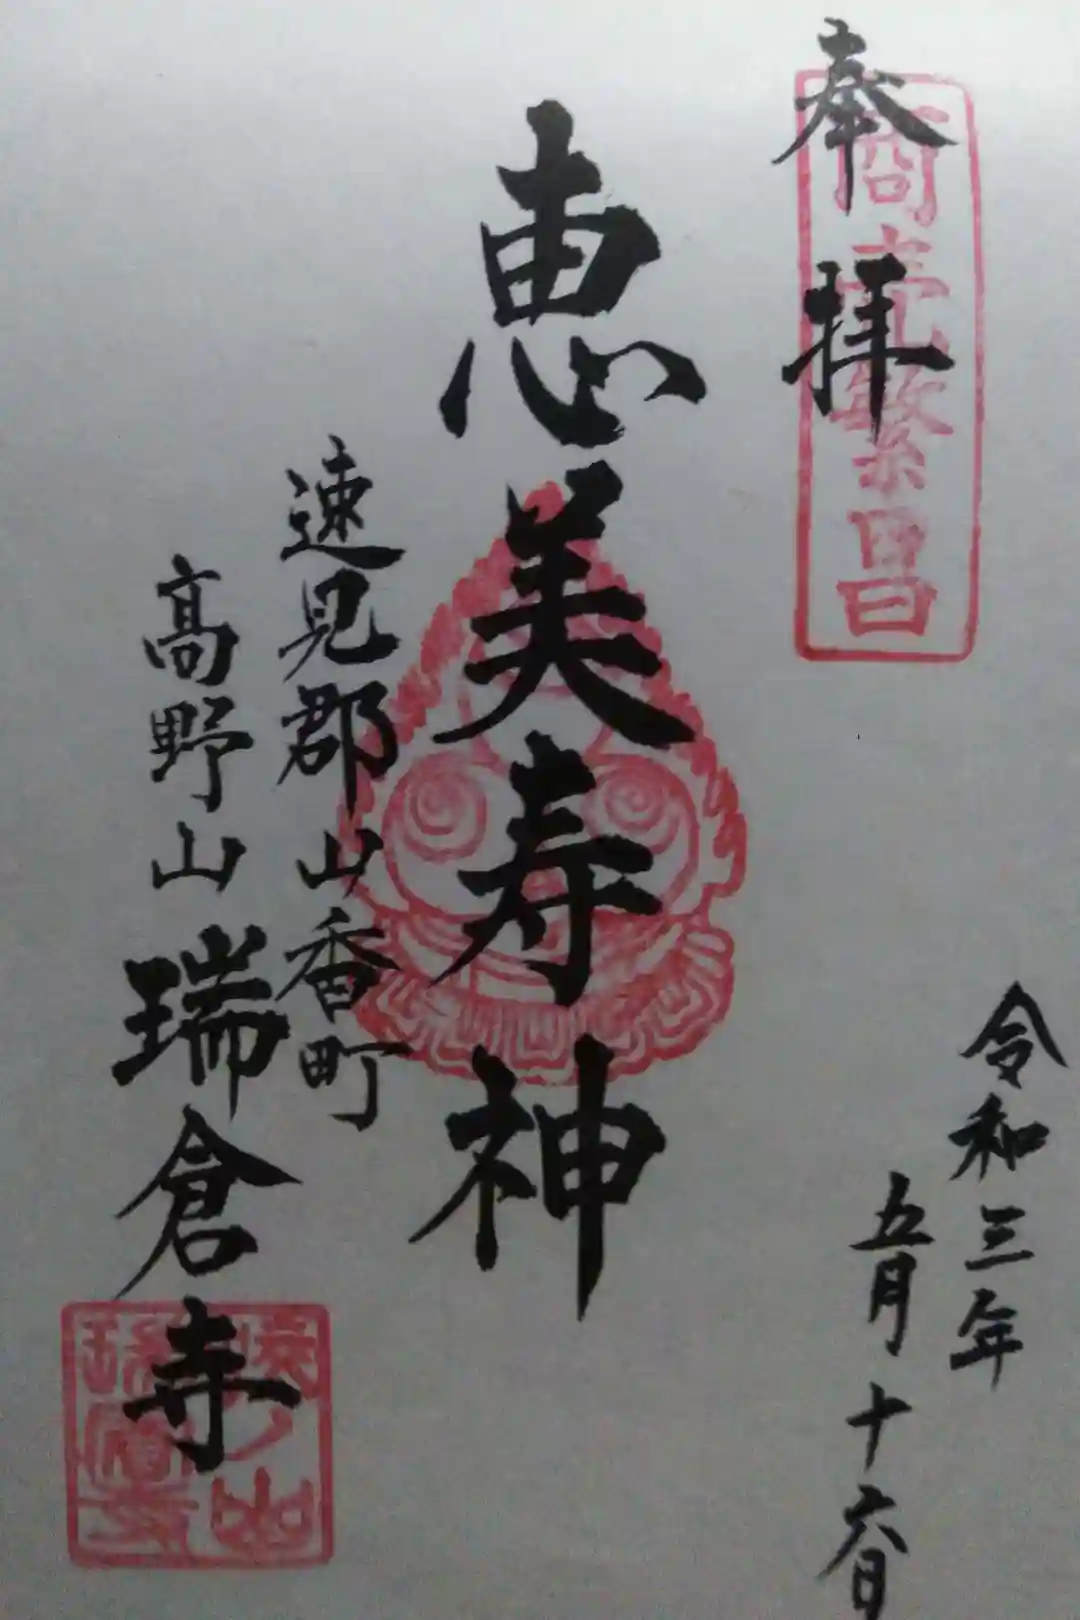 奉拝
商売繁昌
令和三年
五月十六日
恵美寿神
速見郡山香町
高野山瑞倉寺